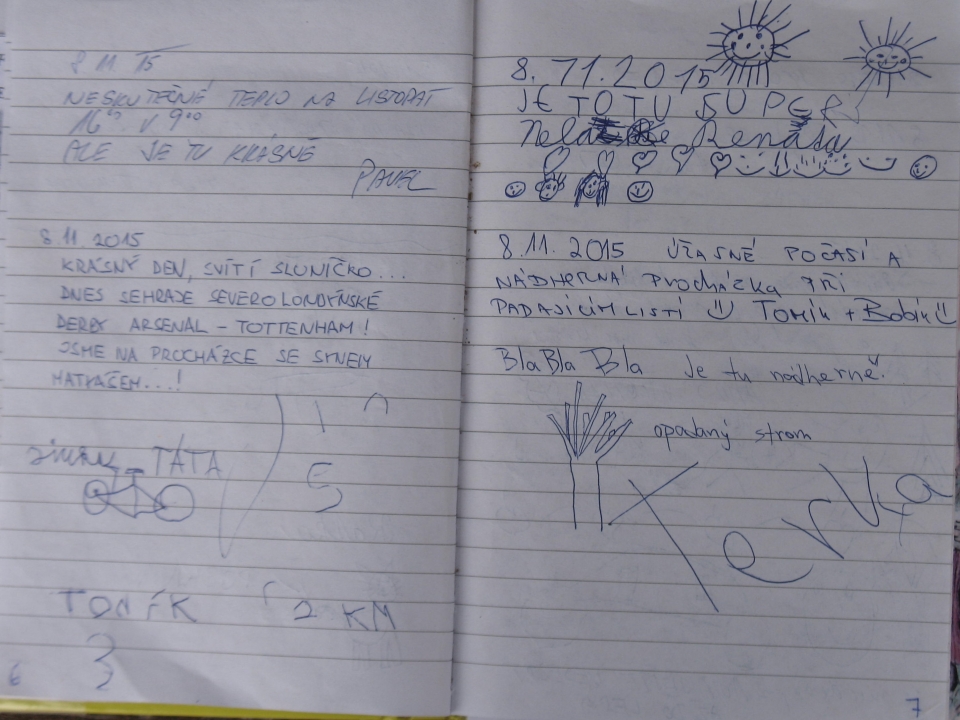 8 11 15
NESKUTEČNÉ TEPLO NA LISTOPAT
16° V 9⁰⁰
ALE JE TU KRÁSNĚ
PAVEL
8.11.2015
KRÁSNÝ DEN, SVÍTÍ SLUNÍČKO...
DNES SEHRAJE SEVEROLONDÝNSKÉ
DERBY ARSENAL - TOTTENHAM!
JSME NA PROCHÁZCE SE SYNEM
MATYÁŠEM...!
TÁTA
TONÍK 2 KM
3
6
8.11.2015
JE TO TU SUPER
Nela Renata
8.11.2015 ÚŽASNÉ POČASÍ A
NÁDHERNÁ Procházka PŘI
PADAJÍCÍM LISTÍ Tomík + Bobík
Bla Bla Bla Je tu nádherně.
opadaný strom
Terka
7